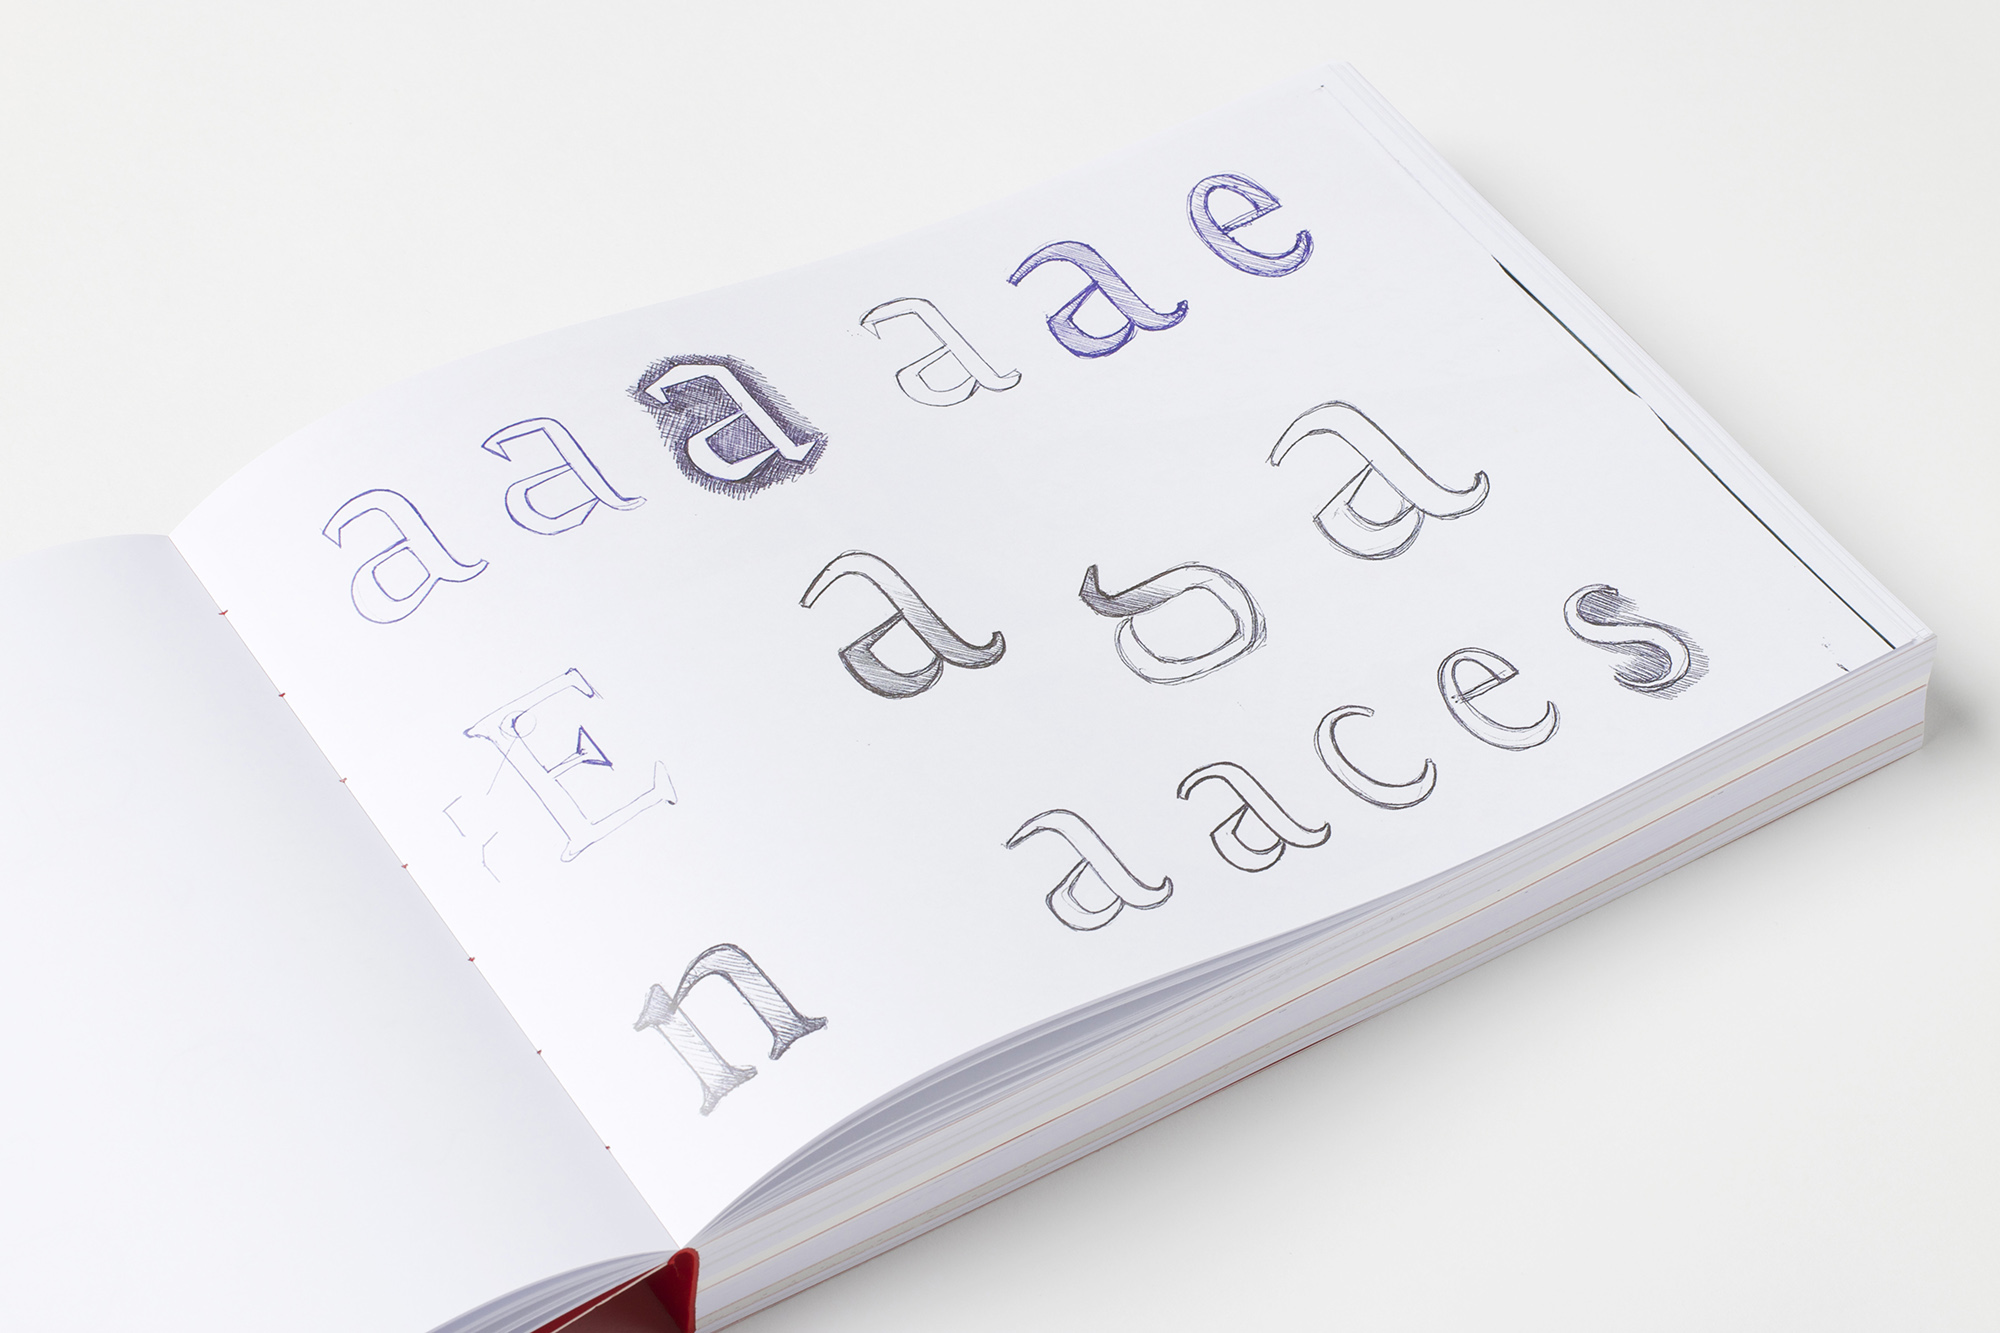 a a a a a e
E a a
n a a c e s